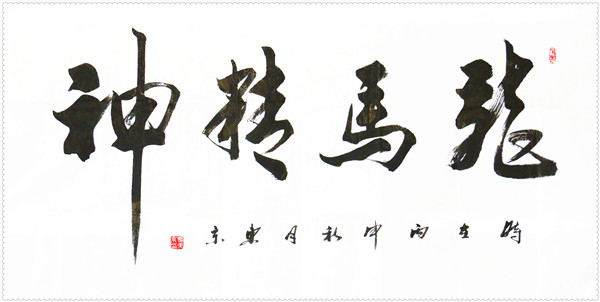 龍馬精神
時在丙申秋月